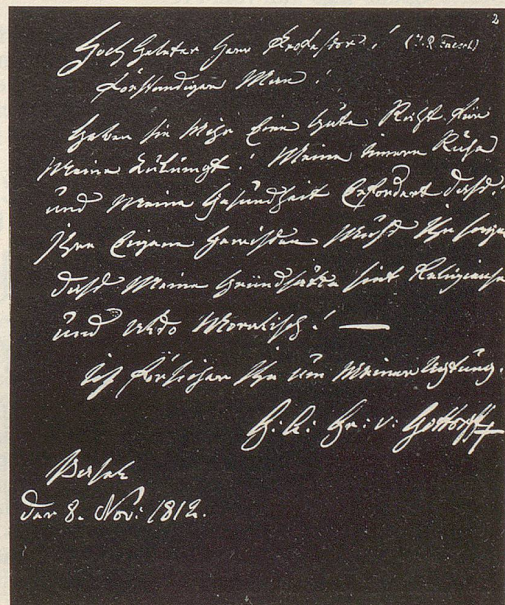 2
Hoch gelehrter Herr Professor! (J. R. Faesch)
Forständigen Man!
Geben sie Mihr Eine gute Richt für
Meine Zukunft! Meine innere Ruhe
und Meine Gesundheit Erfordert dass.
ihre Eigene Gewissen Muss Ihn sagen
dass Meine Grundsätze sint Religieuse
und also Moralisch! —
Ich forsicher Ihn um Meiner Achtung.
G: A: Gr: v: Gottorff
Basel
der 8. Nov: 1812.